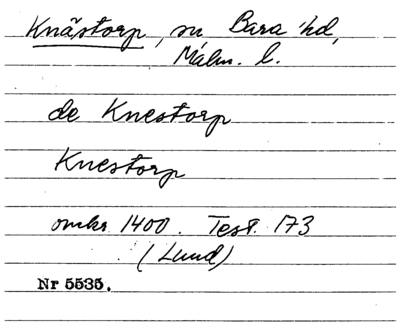 Knästorp, sn, Bara hd,
Malm. l.
de Knestorp
Knestorp
omkr 1400. Test. 173
(Lund)
Nr 5535.